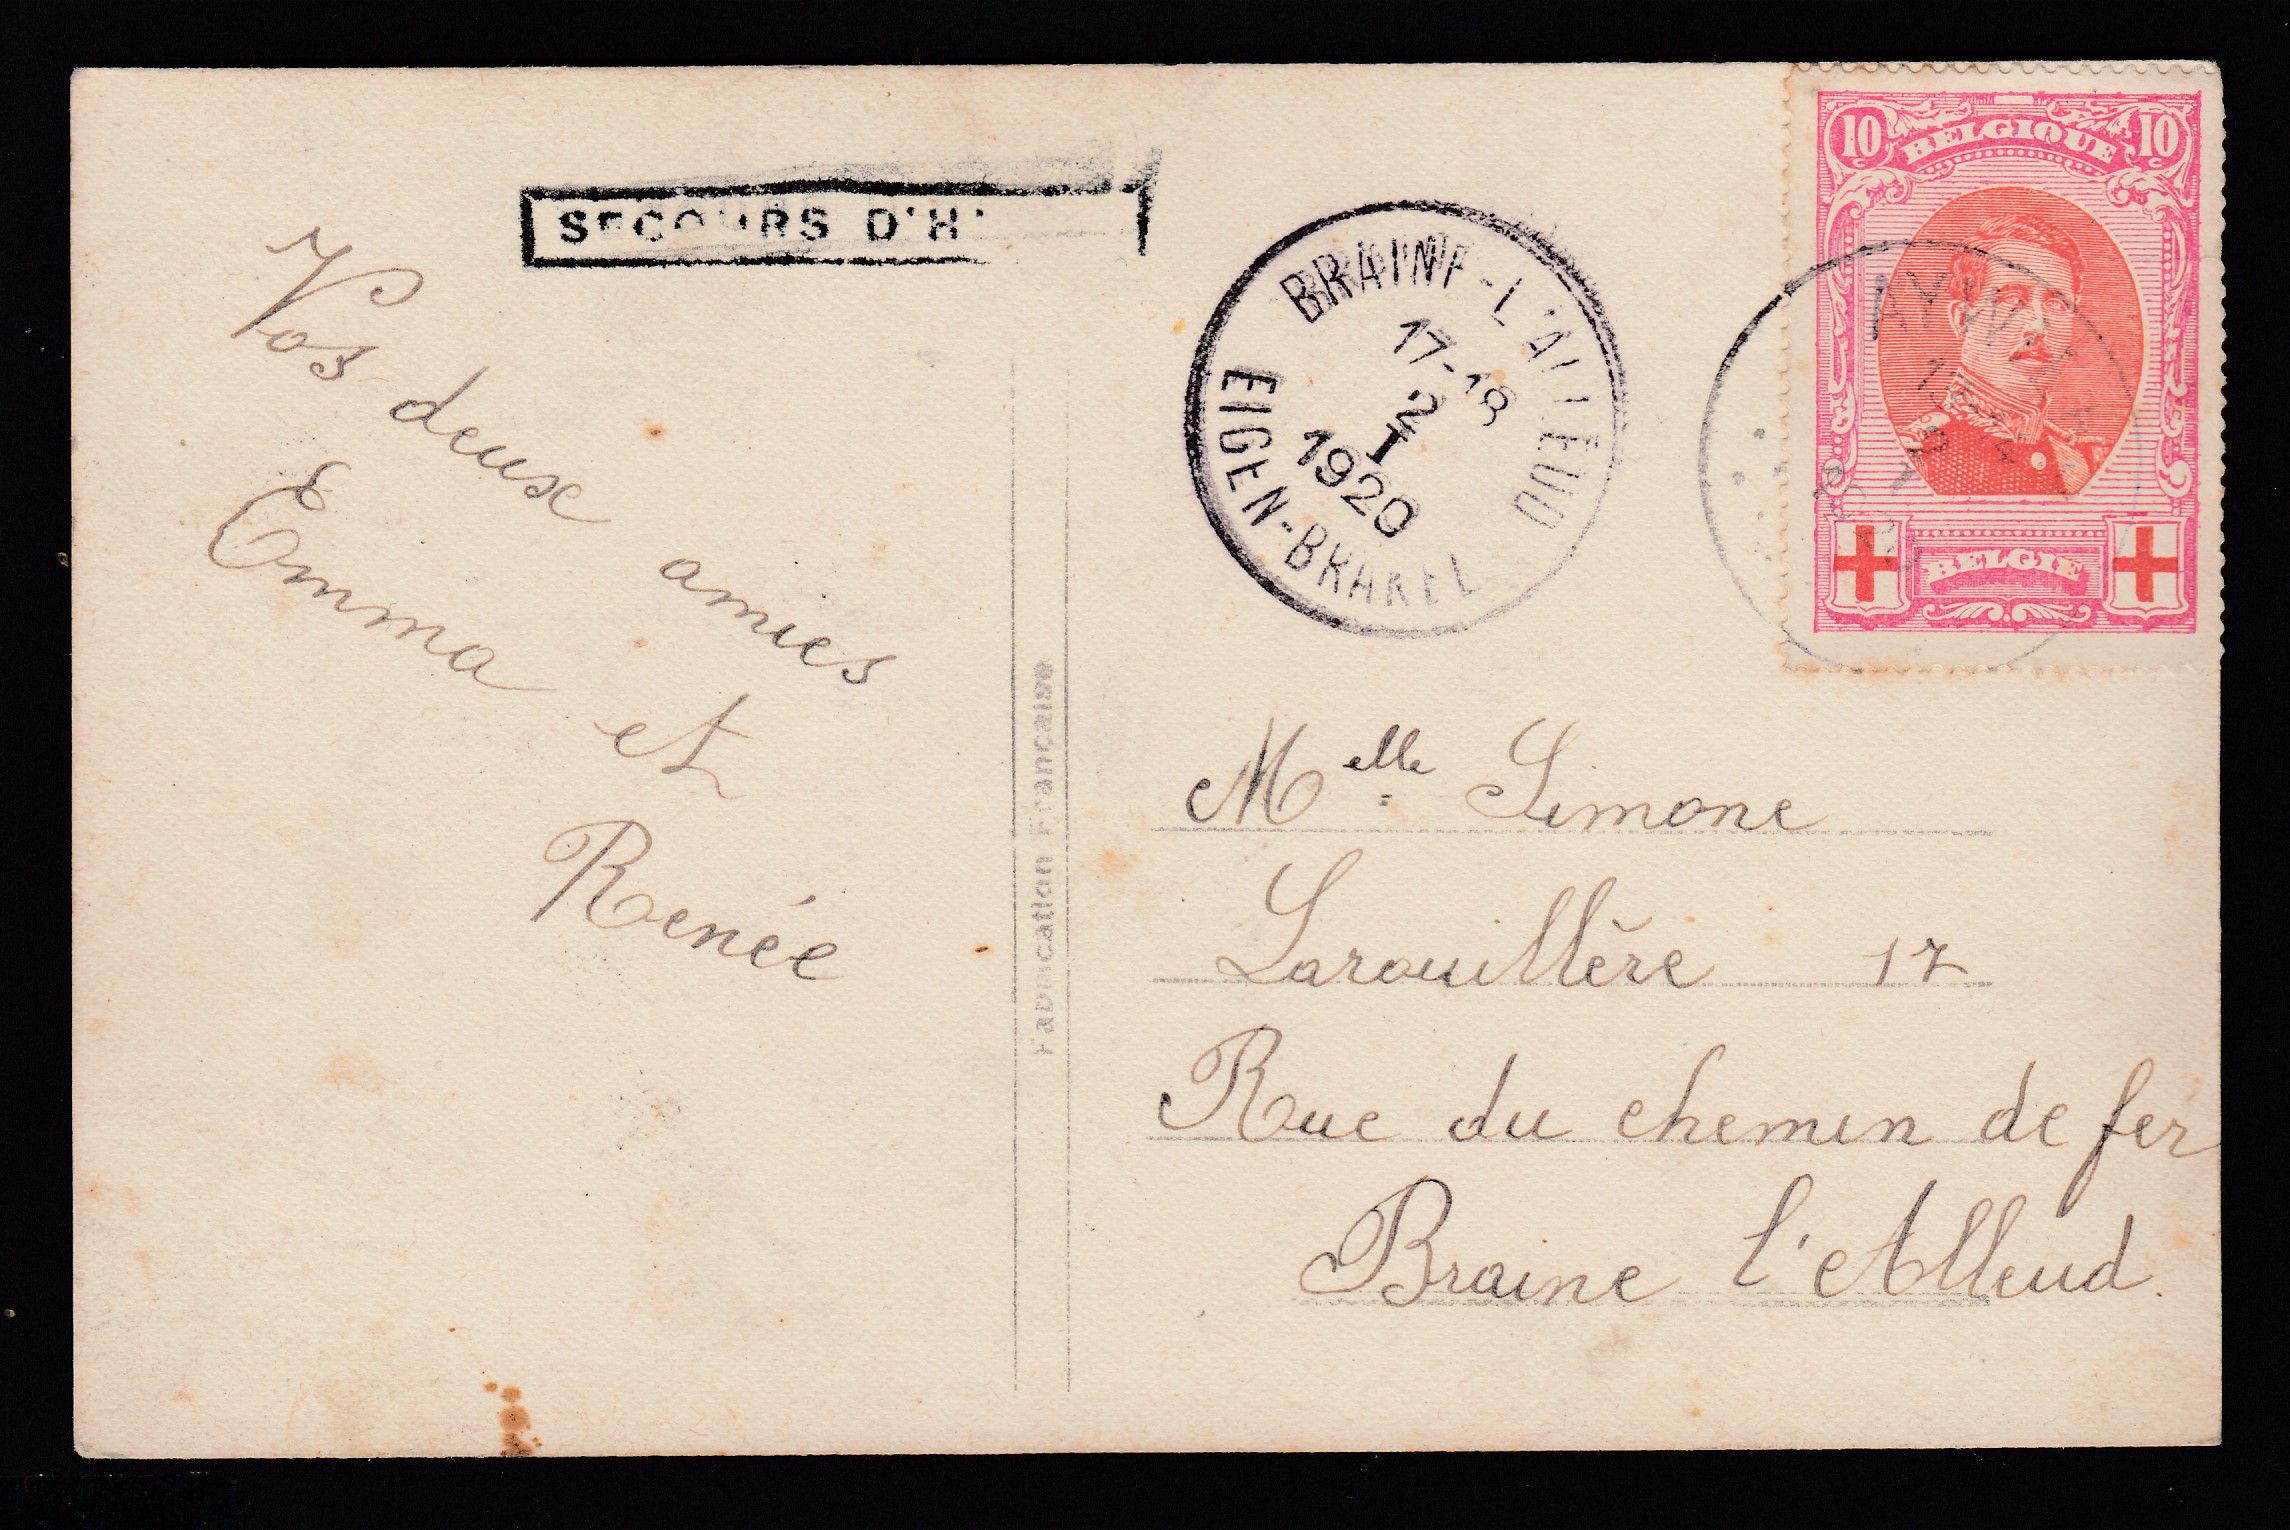 SECOURS D'H
Vos deux amies
Emma et
Renée
Fabrication Française
BRAINE-L'ALLEUD
17-18
2
I
1920
EIGEN-BRAKEL
10 BELGIQUE 10
BELGIE
Melle Simone
Larouillère 17
Rue du chemin de fer
Braine l'Alleud.